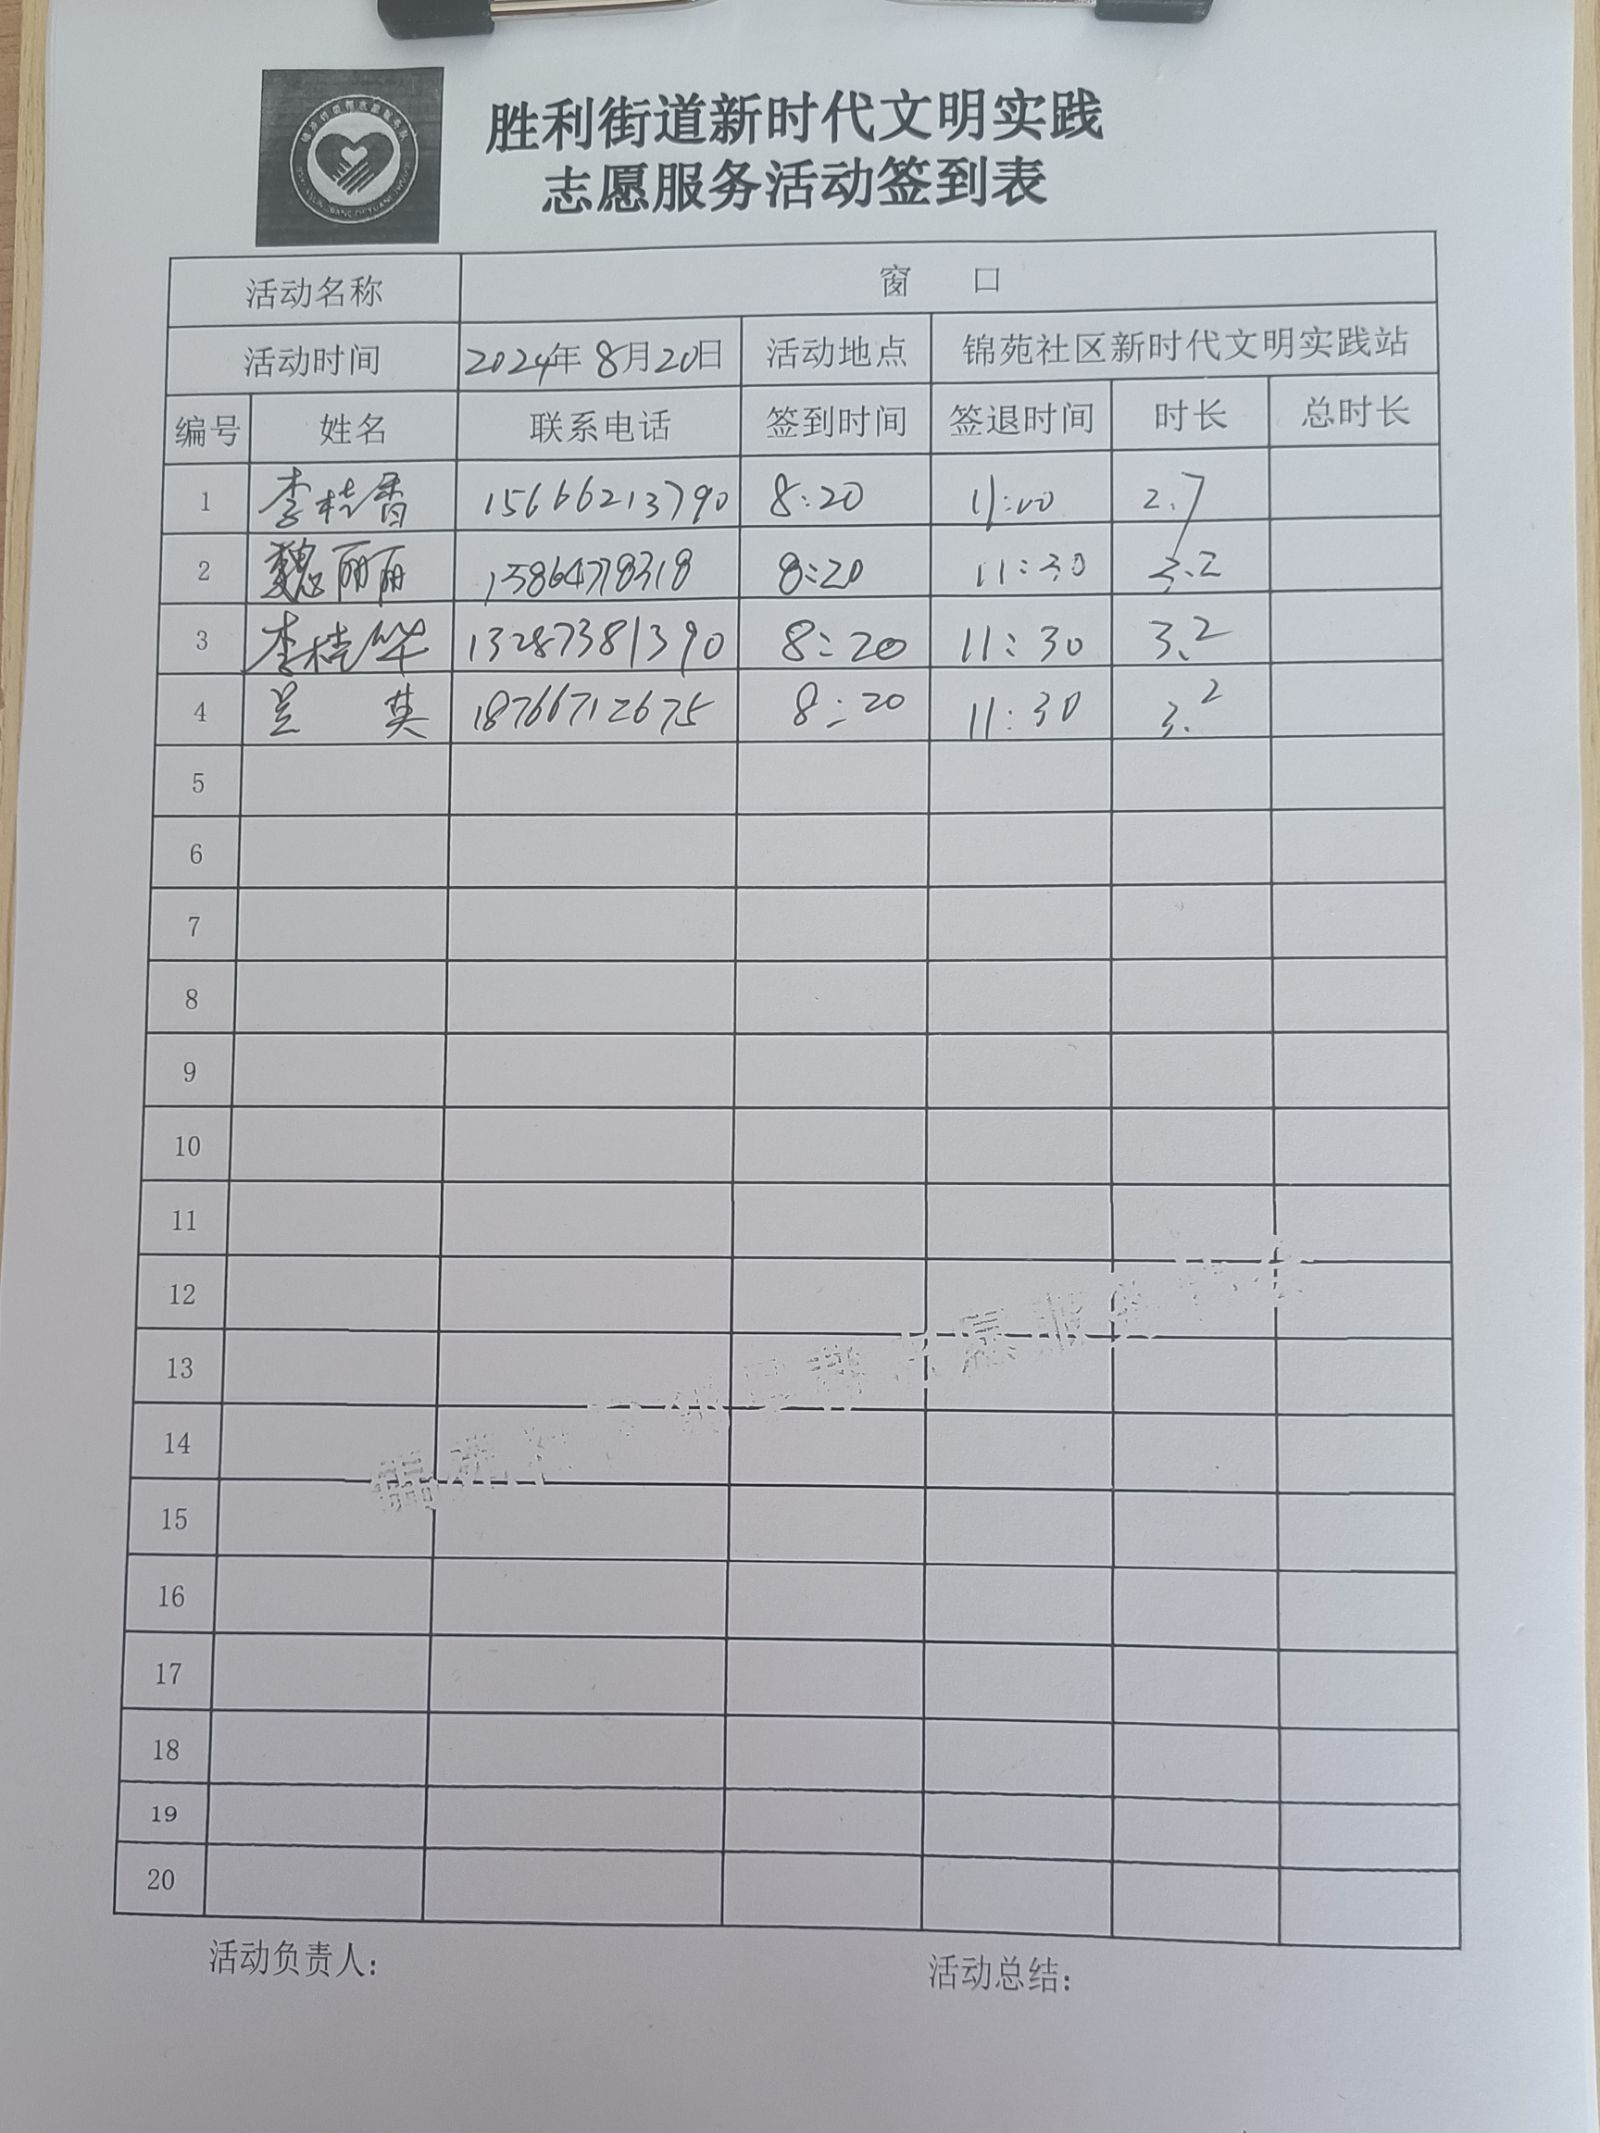 胜利街道新时代文明实践
志愿服务活动签到表
活动名称 窗 口
活动时间 2024年8月20日 活动地点 锦苑社区新时代文明实践站
编号 姓名 联系电话 签到时间 签退时间 时长 总时长
1 李桂香 15666213790 8:20 11:00 2.7
2 魏丽丽 15864778318 8:20 11:30 3.2
3 李桂华 13287381390 8:20 11:30 3.2
4 吴 英 18766712675 8:20 11:30 3.2
5
6
7
8
9
10
11
12
13
14
15
16
17
18
19
20
活动负责人:
活动总结: